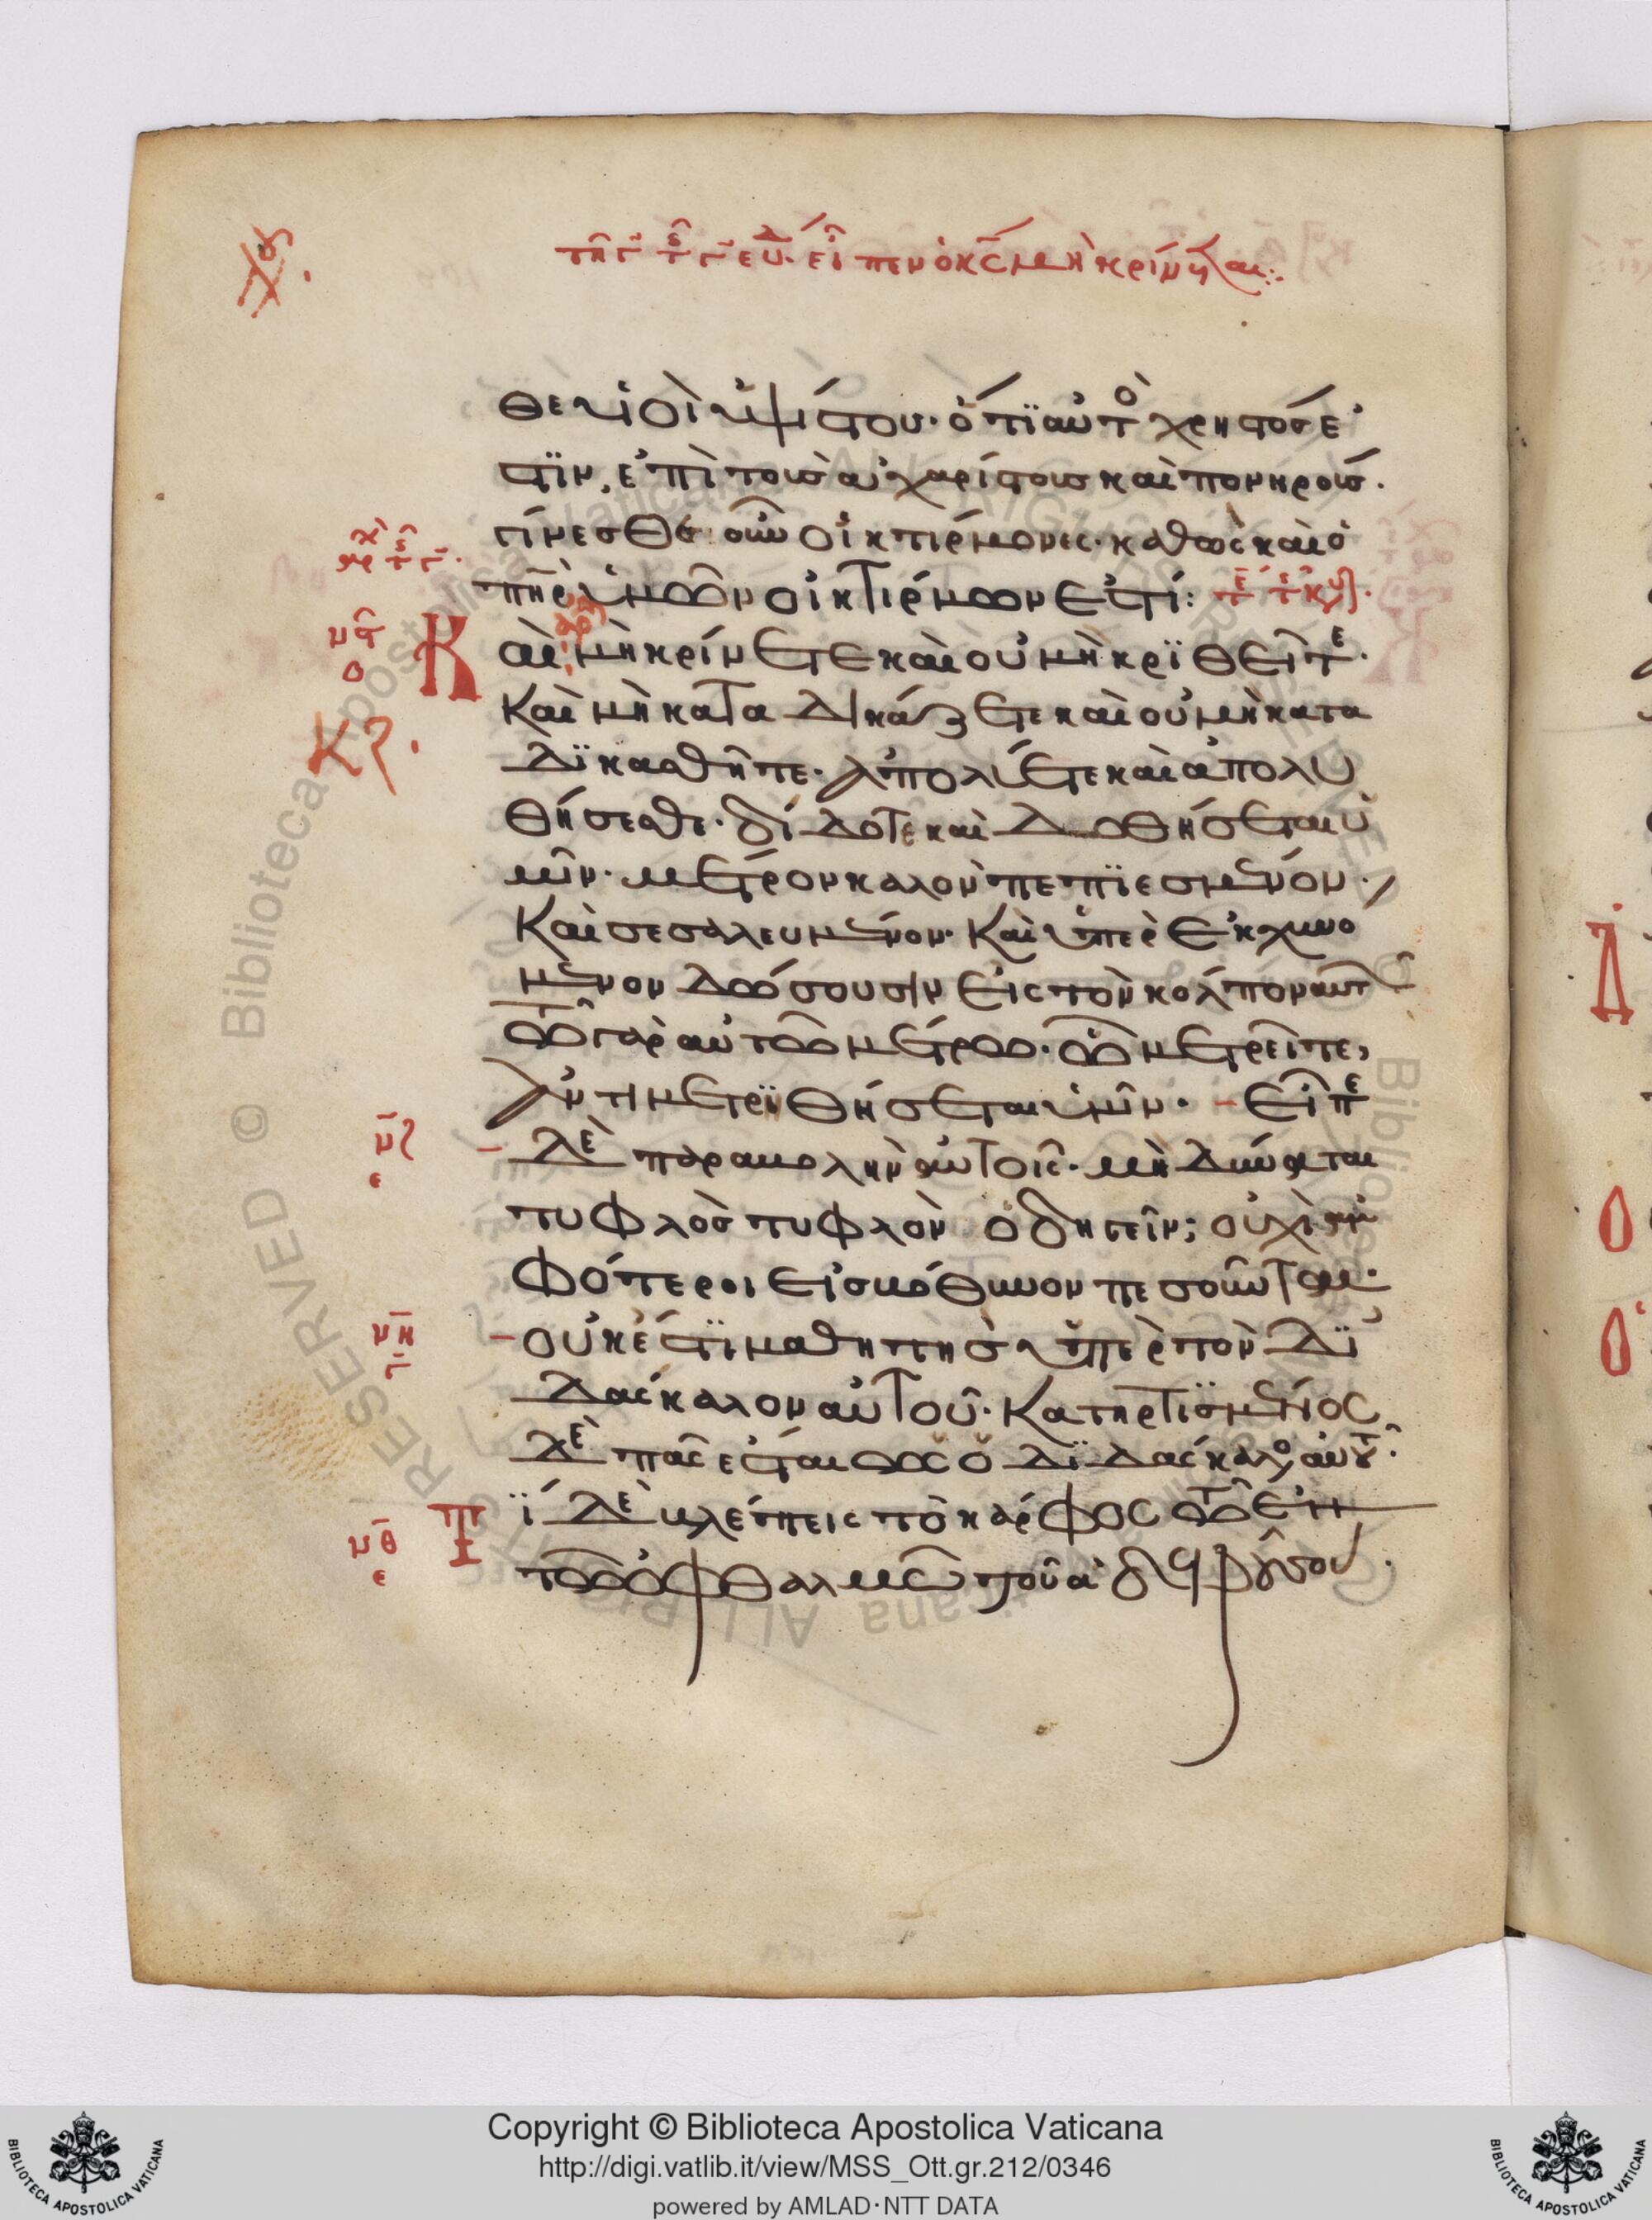 τῇ γ τ ϛ γ εὐ. εἶπεν ὁ κς μὴ κρίνετε
θε υἱοὶ ὑψίστου· ὅτι αὐτὸ χρηστός ἐ
στιν, ἐπὶ τοὺς ἀχαρίστους καὶ πονηρούς.
γίνεσθε οὖν οἰκτίρμονες· καθὼς καὶ ὁ
πηρ ὑμῶν οἰκτίρμων ἐστί:
Καὶ μὴ κρίνετε καὶ οὐ μὴ κριθεῖτε.
καὶ μὴ καταδικάζετε καὶ οὐ μὴ κατα
δικασθῆτε· ἀπολύετε καὶ ἀπολυ
θήσεσθε· δίδοτε καὶ δωθήσεται ὑ
μῖν· μέτρον καλὸν πεπιεσμένον·
καὶ σεσαλευμένον· καὶ ὑπερεκχυνο
μενον δώσουσιν εἰς τὸν κόλπον αὐτ
τῶ γὰρ αὐτῶ μέτρω· ὧ μετρεῖτε,
ἀντιμετριθήσεται ὑμῖν· εἶπε
δὲ παραβολὴν αὐτοῖς· μὴ δύναται
τυφλὸς τυφλὸν ὁδηγεῖν; οὐχὶ ἀμ
φότεροι εἰς βόθυνον πεσοῦνται·
οὐκ ἔστι μαθητὴς ὑπὲρ τὸν δι
δάσκαλον αὐτοῦ· κατηρτισμένος
δὲ πᾶς ἔσται ὡς ὁ διδάσκαλος αὐτοῦ·
Τί δὲ βλέπεις τὸ κάρφος τῶ ἐν
τῶ ὀφθαλμῶ τοῦ ἀδελφοῦ σου·
μϛ
ο
ΚϚ.
μζ
ε
μη
γ
μθ
ε
Copyright © Biblioteca Apostolica Vaticana
http://digi.vatlib.it/view/MSS_Ott.gr.212/0346
powered by AMLAD·NTT DATA
BIBLIOTECA APOSTOLICA VATICANA
BIBLIOTECA APOSTOLICA VATICANA